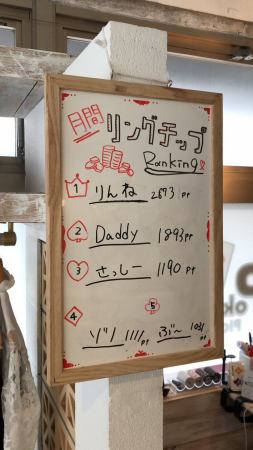 月間 リングチップ
Ranking
1 りんね 2673pt
2 Daddy 1893pt
3 さっしー 1190pt
4 ゾノ 1111pt
5 ぶ〜